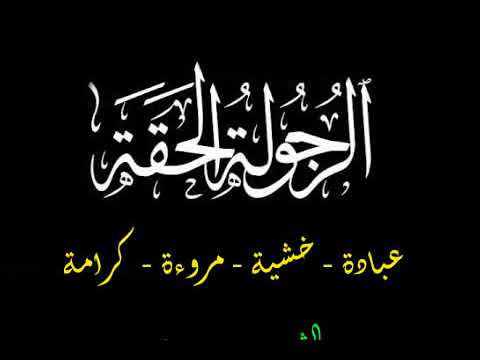 الرجولة الحقة
عبادة - خشية - مروءة - كرامة